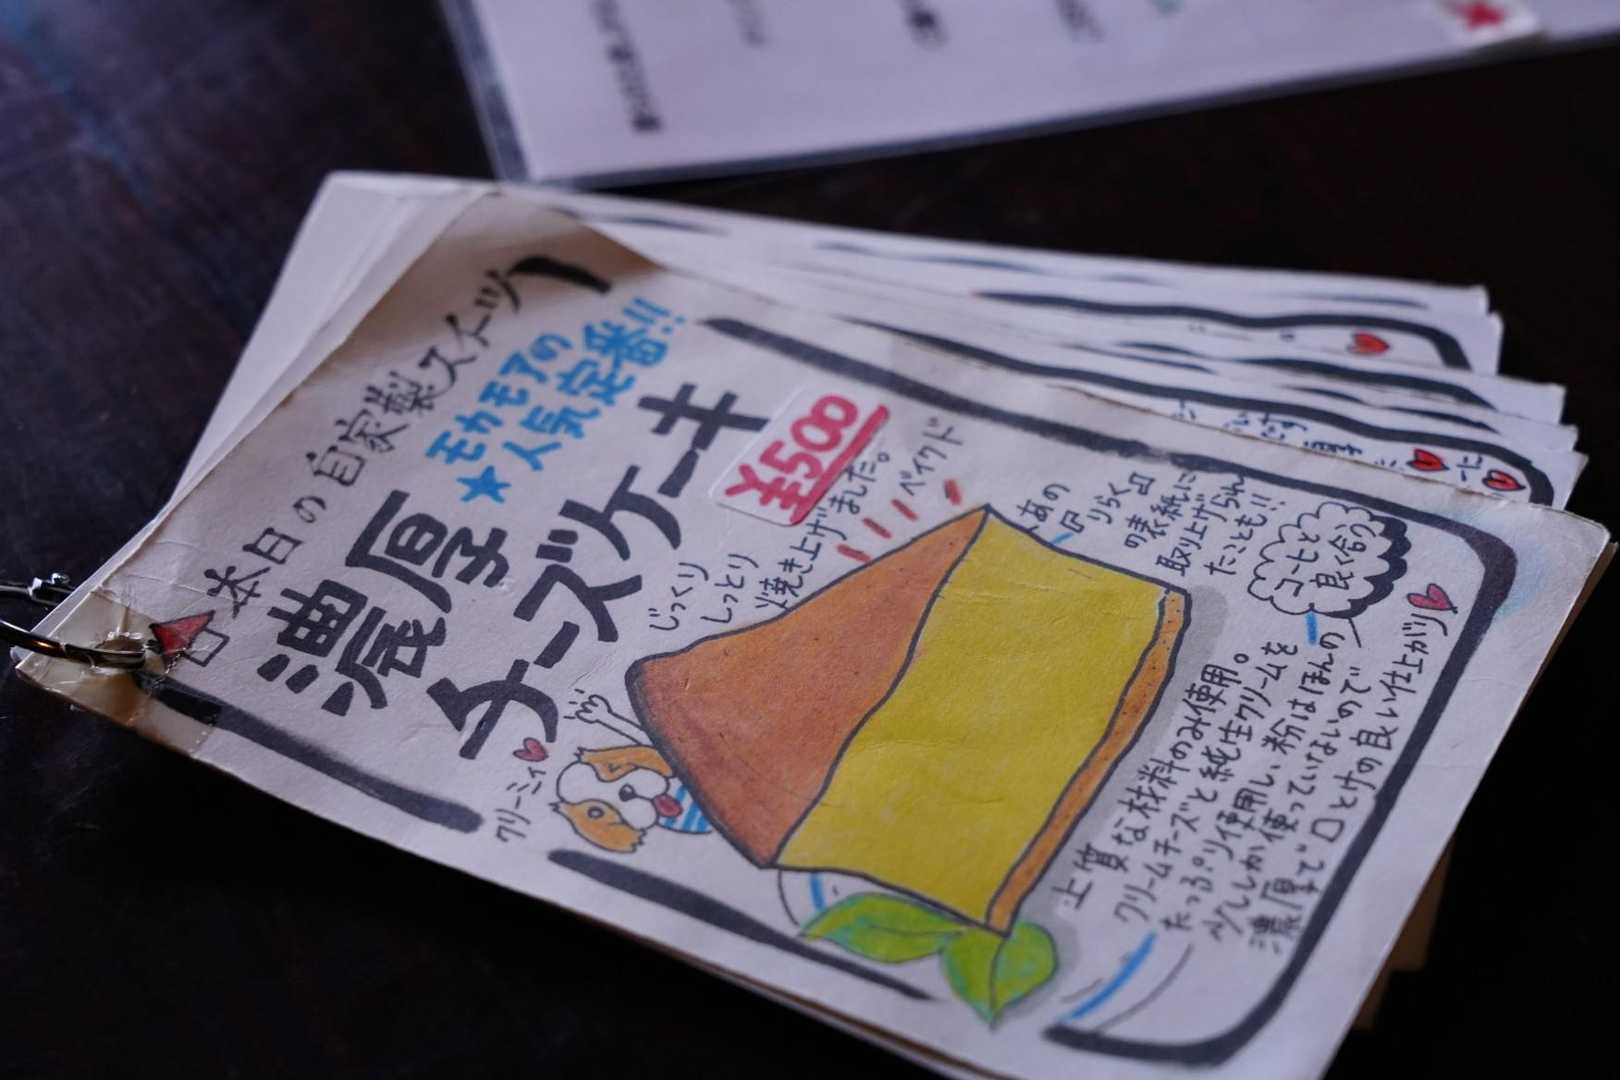 本日の自家製スイーツ
モカモアの
★人気定番!!
濃厚
チーズケーキ
¥500
クリーミィ♥
じっくり
しっとり
焼き上げました。
ベイクド
あの
りらく
の表紙に
取り上げられ
たことも!!
コーヒーと
良い合う
上質な材料のみ使用。
クリームチーズと純生クリームを
たっぷり使用し、粉はほんの
少ししか使っていないので
濃厚で口とけの良い仕上がり♥